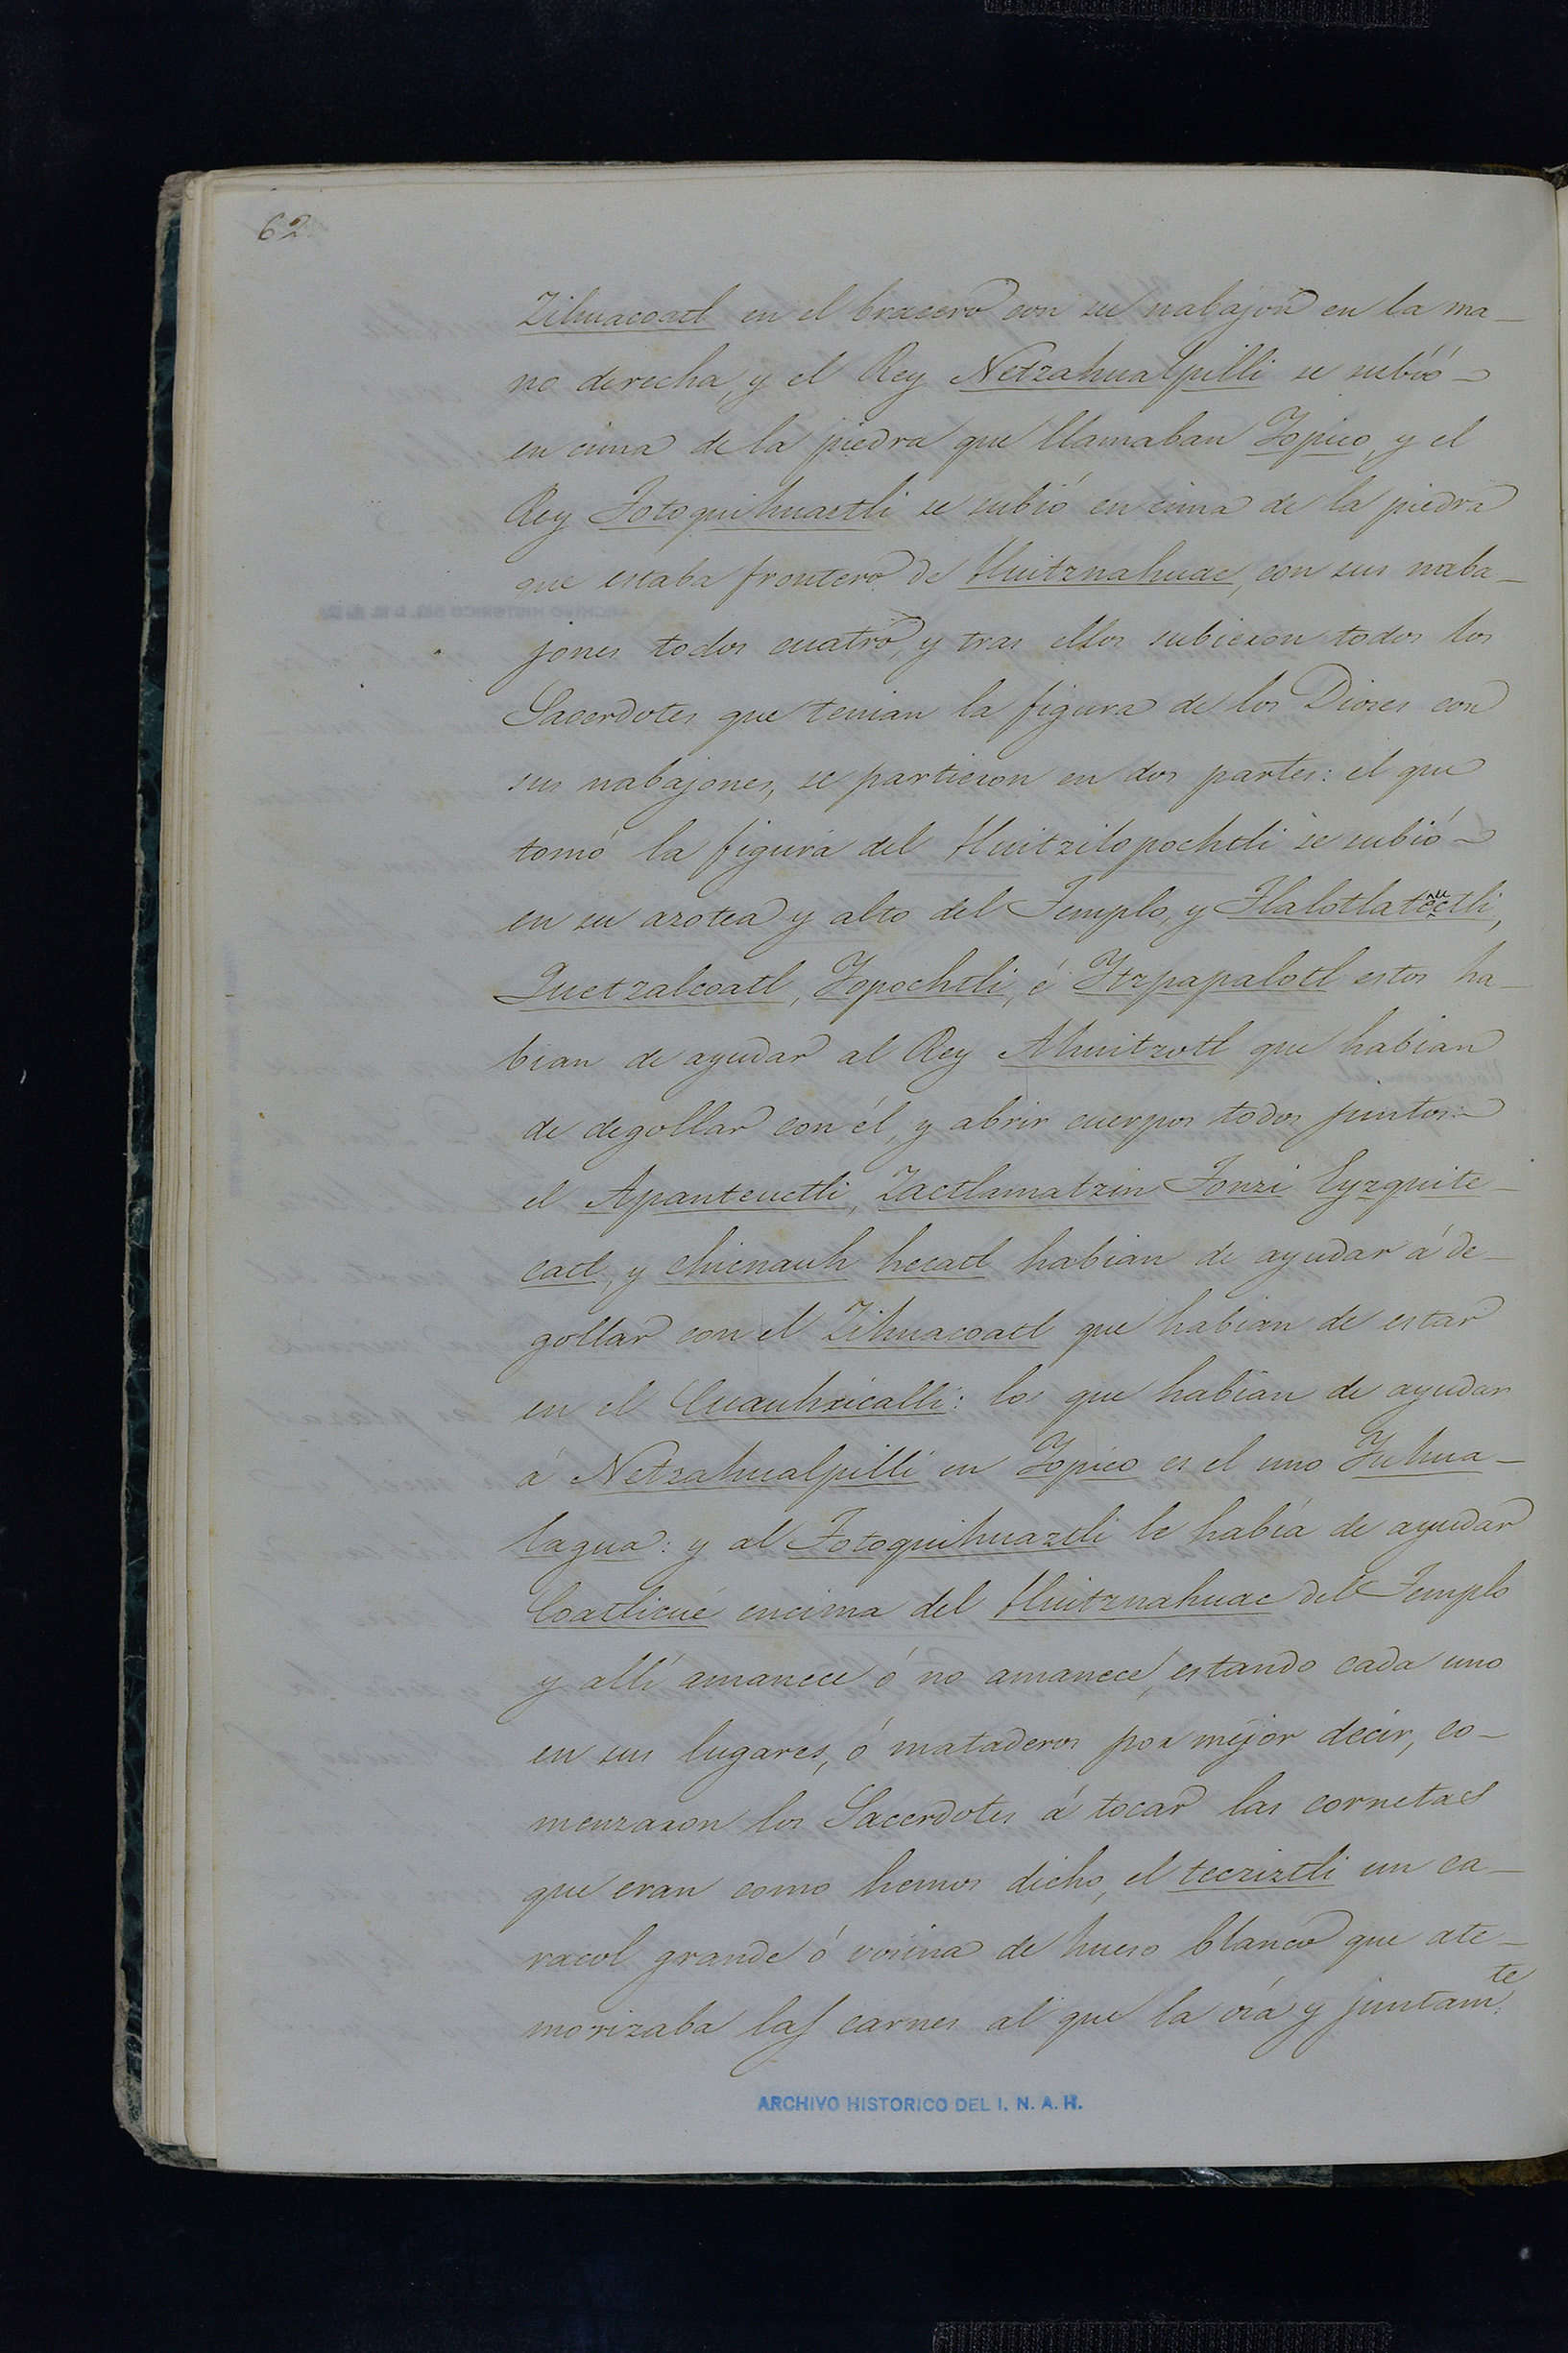 62
Zihuacoatl en el bracero con su nabajon en la ma-
no derecha, y el Rey Netzahualpilli se subió-
en cima de la piedra que llamaban Yopico, y el
Rey Totoquihuaztli se subió en cima de la piedra
que estaba frontero de Huitznahuac, con sus naba-
jones todos cuatro, y tras ellos subieron todos los
Sacerdotes que tenian la figura de los Dioses con
sus nabajones, se partieron en dos partes: el que
tomó la figura del Huitzilopochtli se subió-
en su azotea y alto del Templo, y Tlalotlateuctli,
Quetzalcoatl, Yopochtli, é Ytzpapalotl estos ha-
bian de ayudar al Rey Ahuitzotl que habian
de degollar con él, y abrir cuerpos todos juntos:-
el Apanteuctli, Zactlamatzin Tonzi Yyzquite-
catl, y chicnauh hecatl habian de ayudar á de-
gollar con el Zihuacoatl que habian de estar
en el Cuauhxicalli: los que habian de ayudar
á Netzahualpilli en Yopico es el uno Yuhua-
lagua: y al Totoquihuaztli le habia de ayudar
Coatlicué encima del Huitznahuac del Templo
y allí amanece ó no amanece, estando cada uno
en sus lugares, ó mataderos por mejor decir, co-
menzaron los Sacerdotes á tocar las cornetas
que eran como hemos dicho, el tecziztli un ca-
racol grande ó vosina de hueso blanco que ate-
morizaba las carnes al que la oía y juntamte
ARCHIVO HISTORICO DEL I. N. A. H.